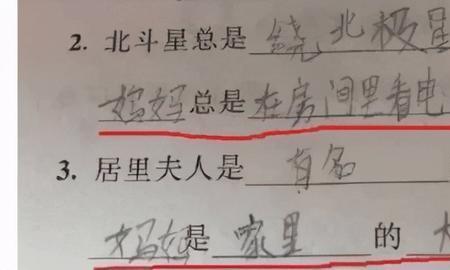 2. 北斗星总是 绕北极星
妈妈总是在房间里看电
3. 居里夫人是 有名
妈妈是 家里 的